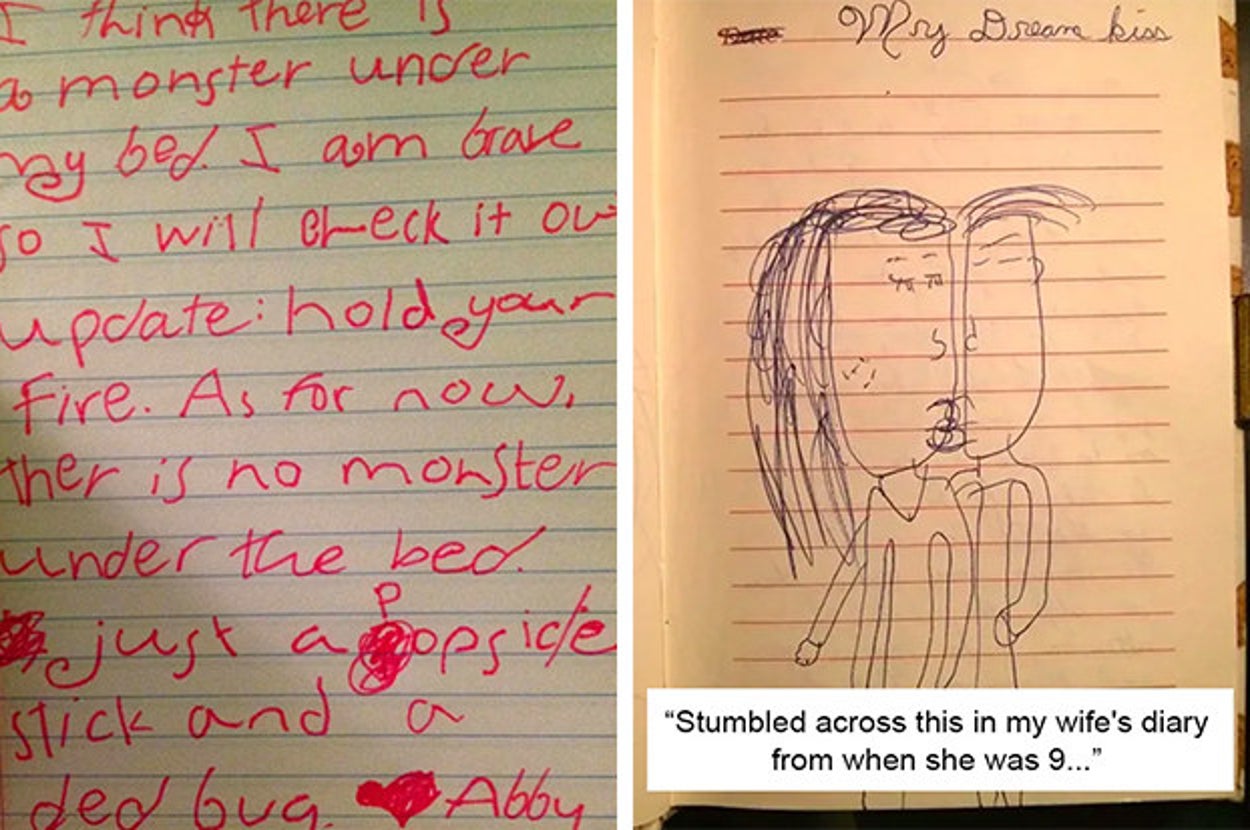 I think there is
a monster under
my bed. I am brave
so I will check it ou
update: hold your
fire. As for now,
ther is no monster
under the bed.
just a popsicle
stick and a
ded bug. Abby
Date My Dream kiss
“Stumbled across this in my wife's diary
from when she was 9...”